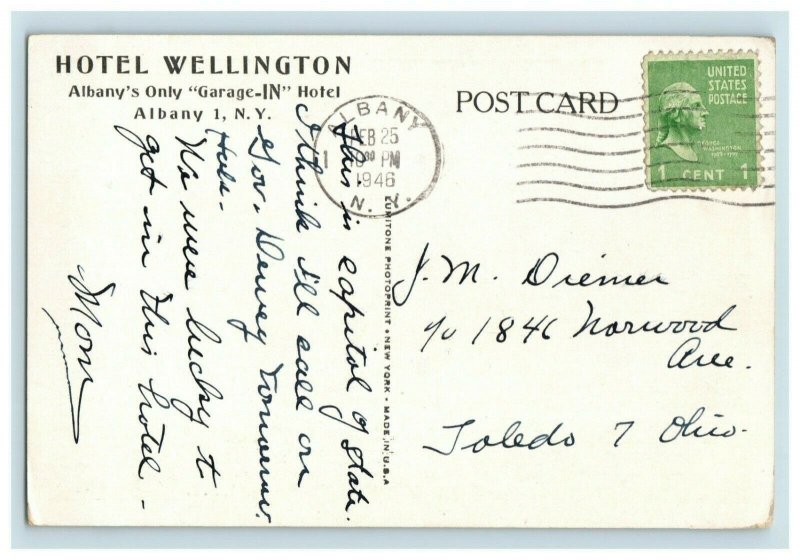 HOTEL WELLINGTON
Albany's Only "Garage-IN" Hotel
Albany 1, N. Y.
POST CARD
ALBANY
1
FEB 25
PM
1946
N. Y.
UNITED
STATES
POSTAGE
GEORGE
WASHINGTON
1 CENT 1
This is capitol of State.
I think I'll call on
Gov. Dewey tomorrow.
Hee-
We were lucky to
get in this hotel -
Mom
LUMITONE PHOTOPRINT • NEW YORK • MADE IN U.S.A
J. M. Diemer
c/o 1846 Norwood
Ave.
Toledo 7 Ohio.